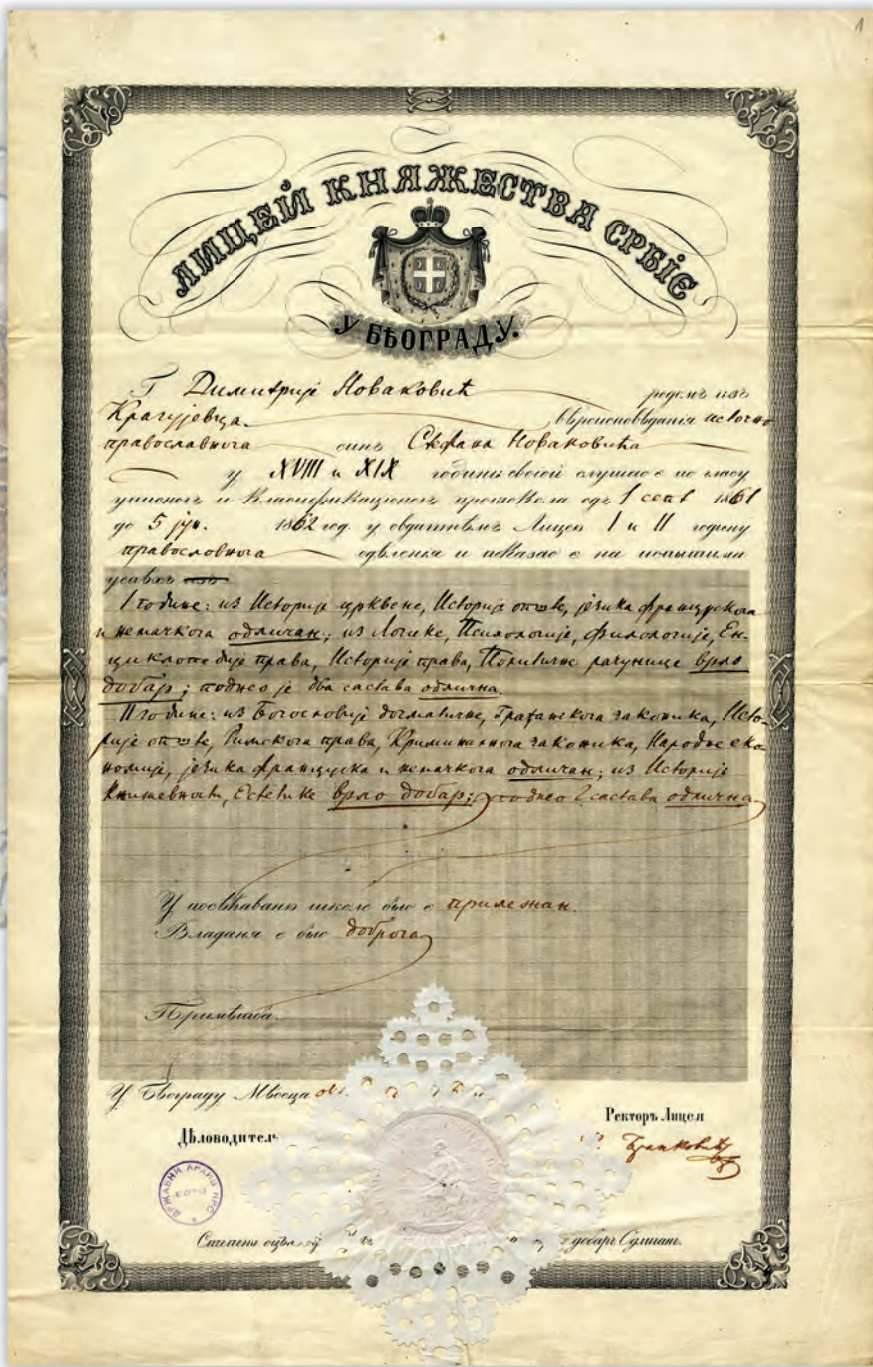 1
ЛИЦЕЙ КНЯЖЕСТВА СРБІЄ
У БѢОГРАДУ.
Г Димитрије Новаковић родомъ изъ
Крагујевца вѣроисповѣданія источно
православнога синъ Стефана Новаковића
у XVIII и XIX години своіой слушао є по гласу
и Класификаціоногъ протокола одъ 1 септ 1861
до 5 јун. 1862 год. у овдашнѣмъ Лицею I и II годину
православнога одѣленія и показао є на испытима
успѣхъ изъ
I године: из Историје црквене, Историје опште, језика францускога
и немачкога одличан; из Логике, Психологије, Филологије, Ен-
циклопедије права, Историје права, Политичне рачунице врло
добар; поднео је два састава одлична.
II године: из Богословије догматичне, Грађанскога законика, Исто-
рије опште, Римскога права, Криминалнога законика, Народне еко-
номије, језика француска и немачкога одличан; из Историје
Књижевности, Естетике врло добар; поднео 2 састава одлична
У посѣћаваню школе био є прилежан.
Владаня є био доброга
Примѣтба.
У Бѣограду Мѣсеца
Ректоръ Лицея
Дѣловодитель
Бранковић
ДРЖАВНИ АРХИВ НРС
Степени добаръ Одличан.